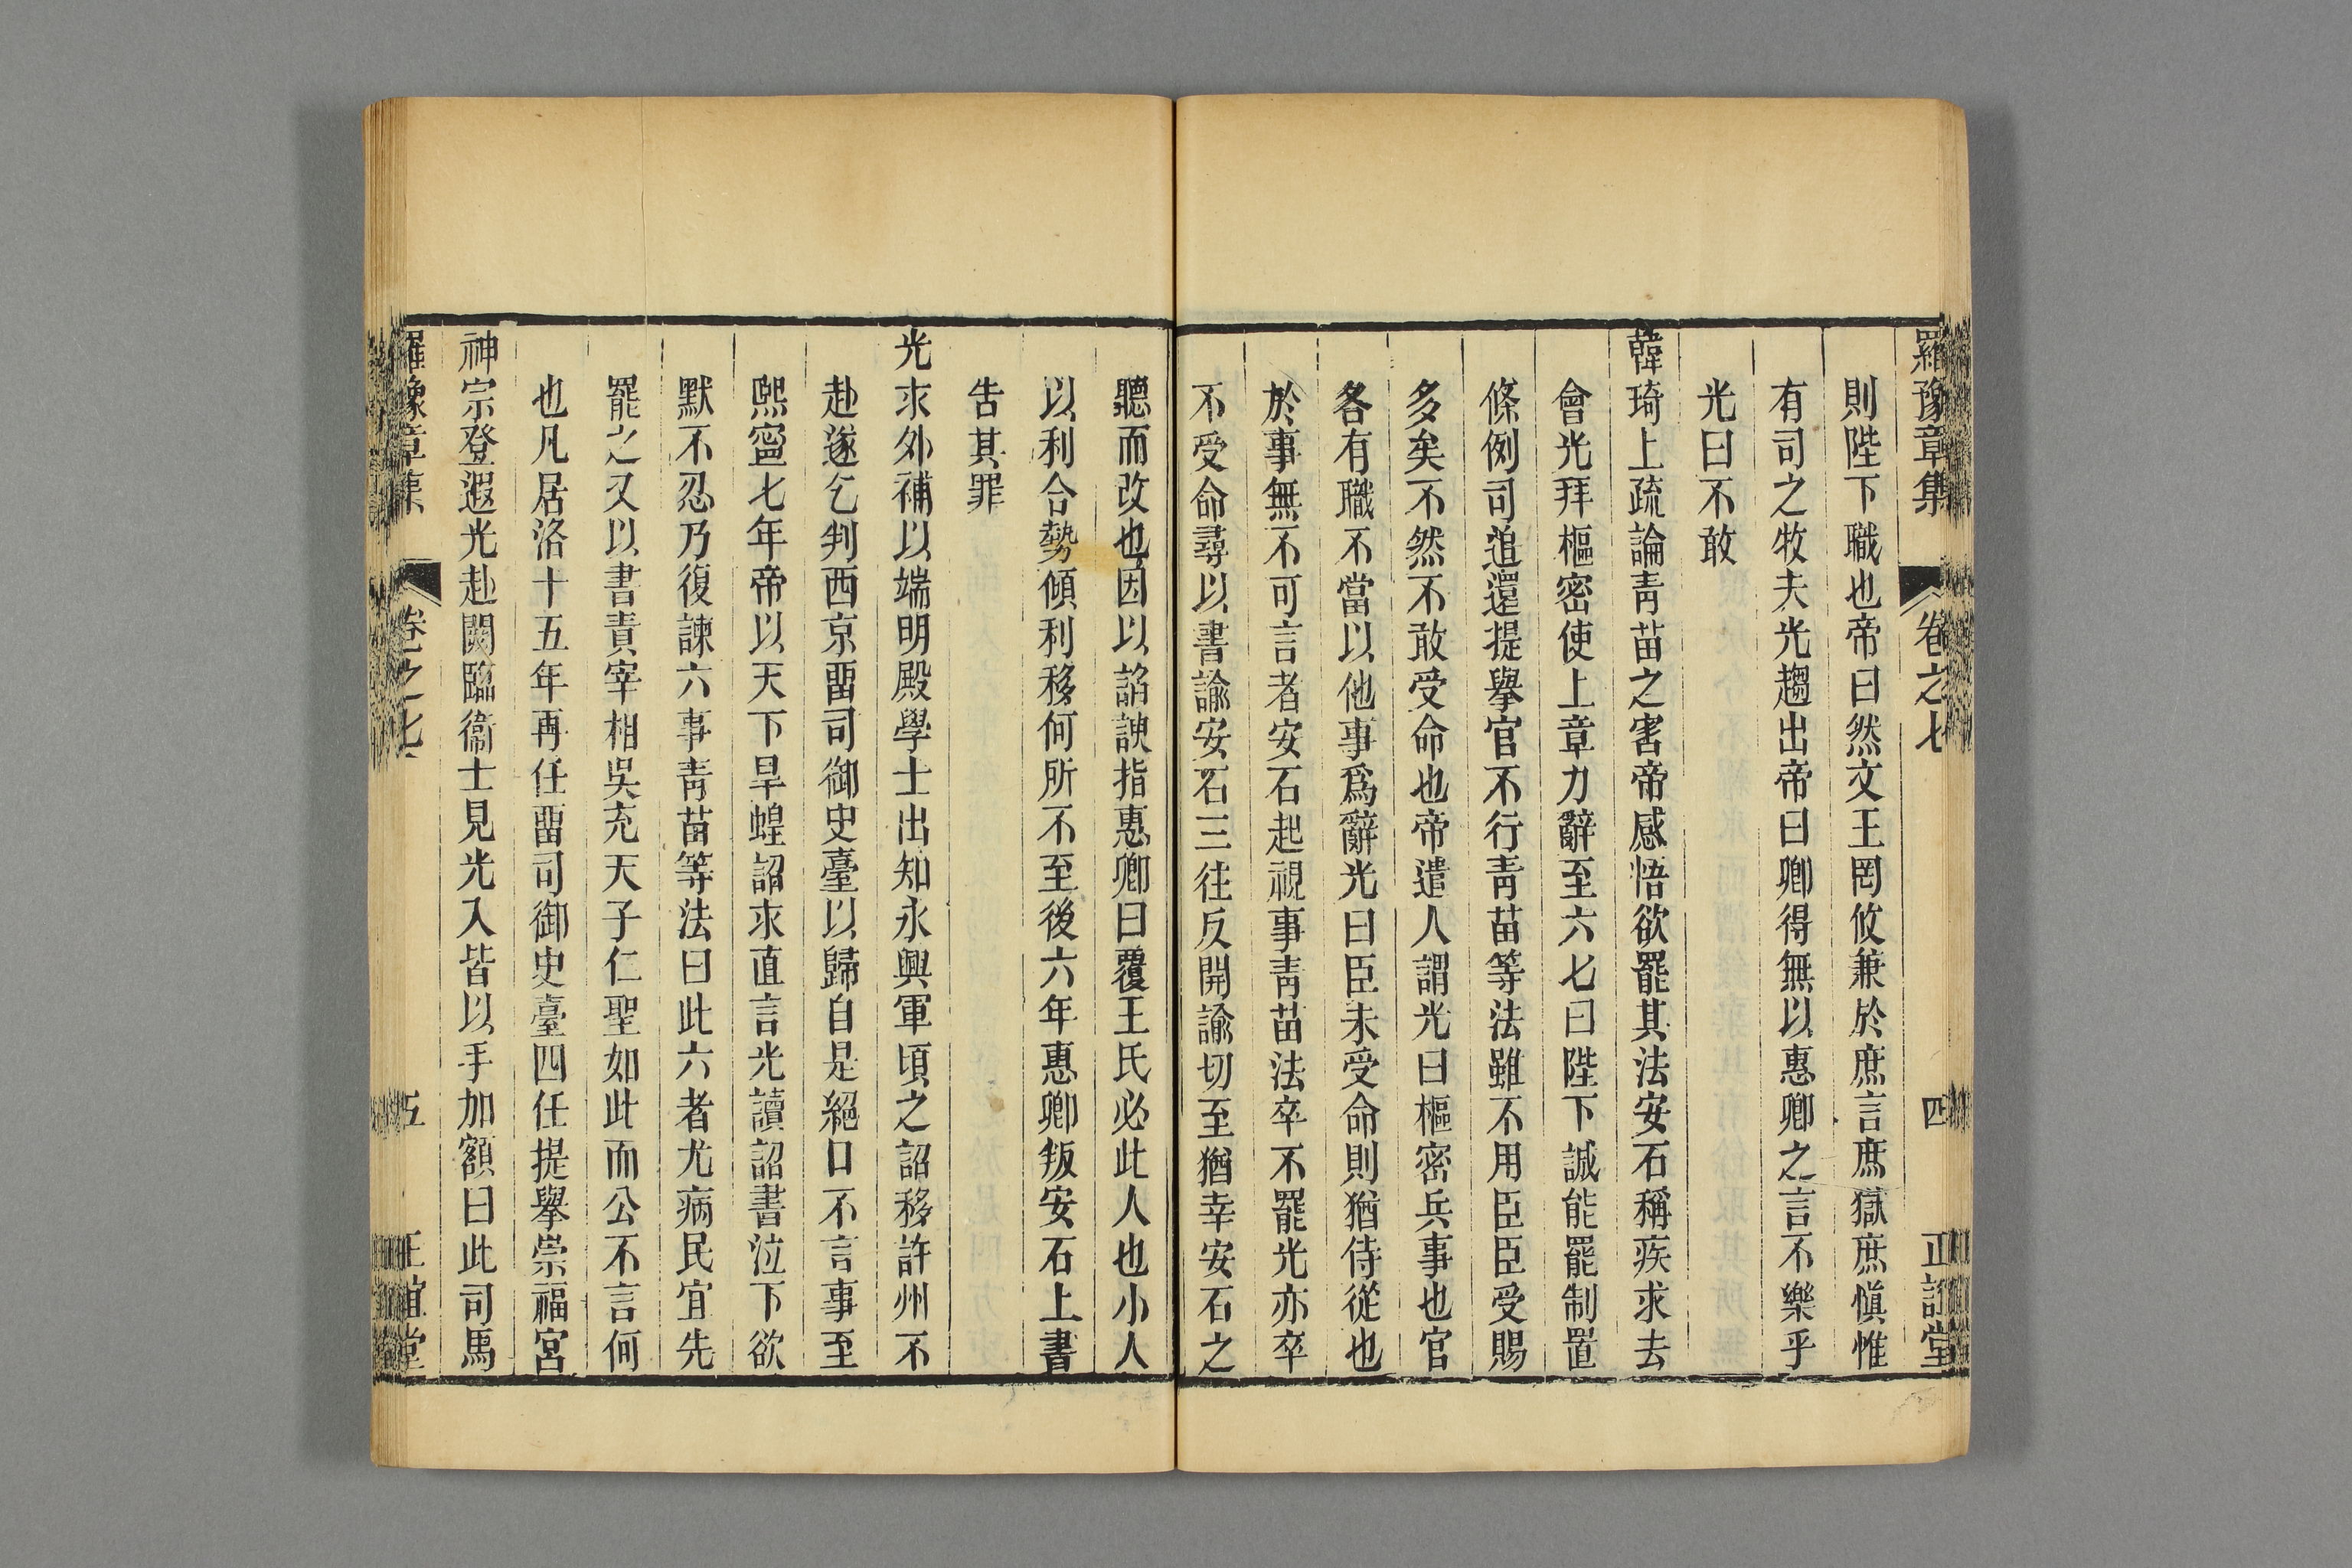 羅豫章集 卷之七 四 正誼堂
則陛下職也帝曰然文王罔攸兼於庶言庶獄庶愼惟
有司之牧夫光趨出帝曰卿得無以惠卿之言不樂乎
光曰不敢
韓琦上疏論青苗之害帝感悟欲罷其法安石稱疾求去
會光拜樞密使上章力辭至六七曰陛下誠能罷制置
條例司追還提舉官不行青苗等法雖不用臣臣受賜
多矣不然不敢受命也帝遣人謂光曰樞密兵事也官
各有職不當以他事爲辭光曰臣未受命則猶侍從也
於事無不可言者安石起視事青苗法卒不罷光亦卒
不受命尋以書諭安石三往反開諭切至猶幸安石之
聽而改也因以諂諛指惠卿曰覆王氏必此人也小人
以利合勢傾利移何所不至後六年惠卿叛安石上書
告其罪
光求外補以端明殿學士出知永興軍頃之詔移許州不
赴遂乞判西京畱司御史臺以歸自是絕口不言事至
熙寧七年帝以天下旱蝗詔求直言光讀詔書泣下欲
默不忍乃復諫六事青苗等法曰此六者尤病民宜先
罷之又以書責宰相吳充天子仁聖如此而公不言何
也凡居洛十五年再任畱司御史臺四任提舉崇福宮
神宗登遐光赴闕臨衞士見光入皆以手加額曰此司馬
羅豫章集 卷之七 五 正誼堂